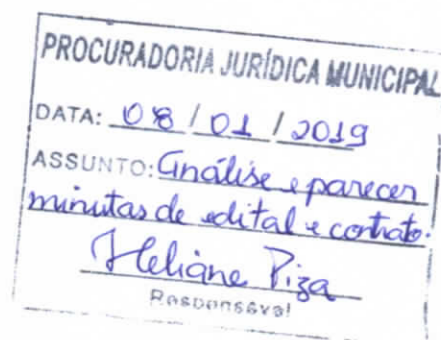 PROCURADORIA JURÍDICA MUNICIPAL
DATA: 08 / 01 / 2019
ASSUNTO: Análise e parecer
minutas de edital e contrato.
Heliane Piza
Responsável